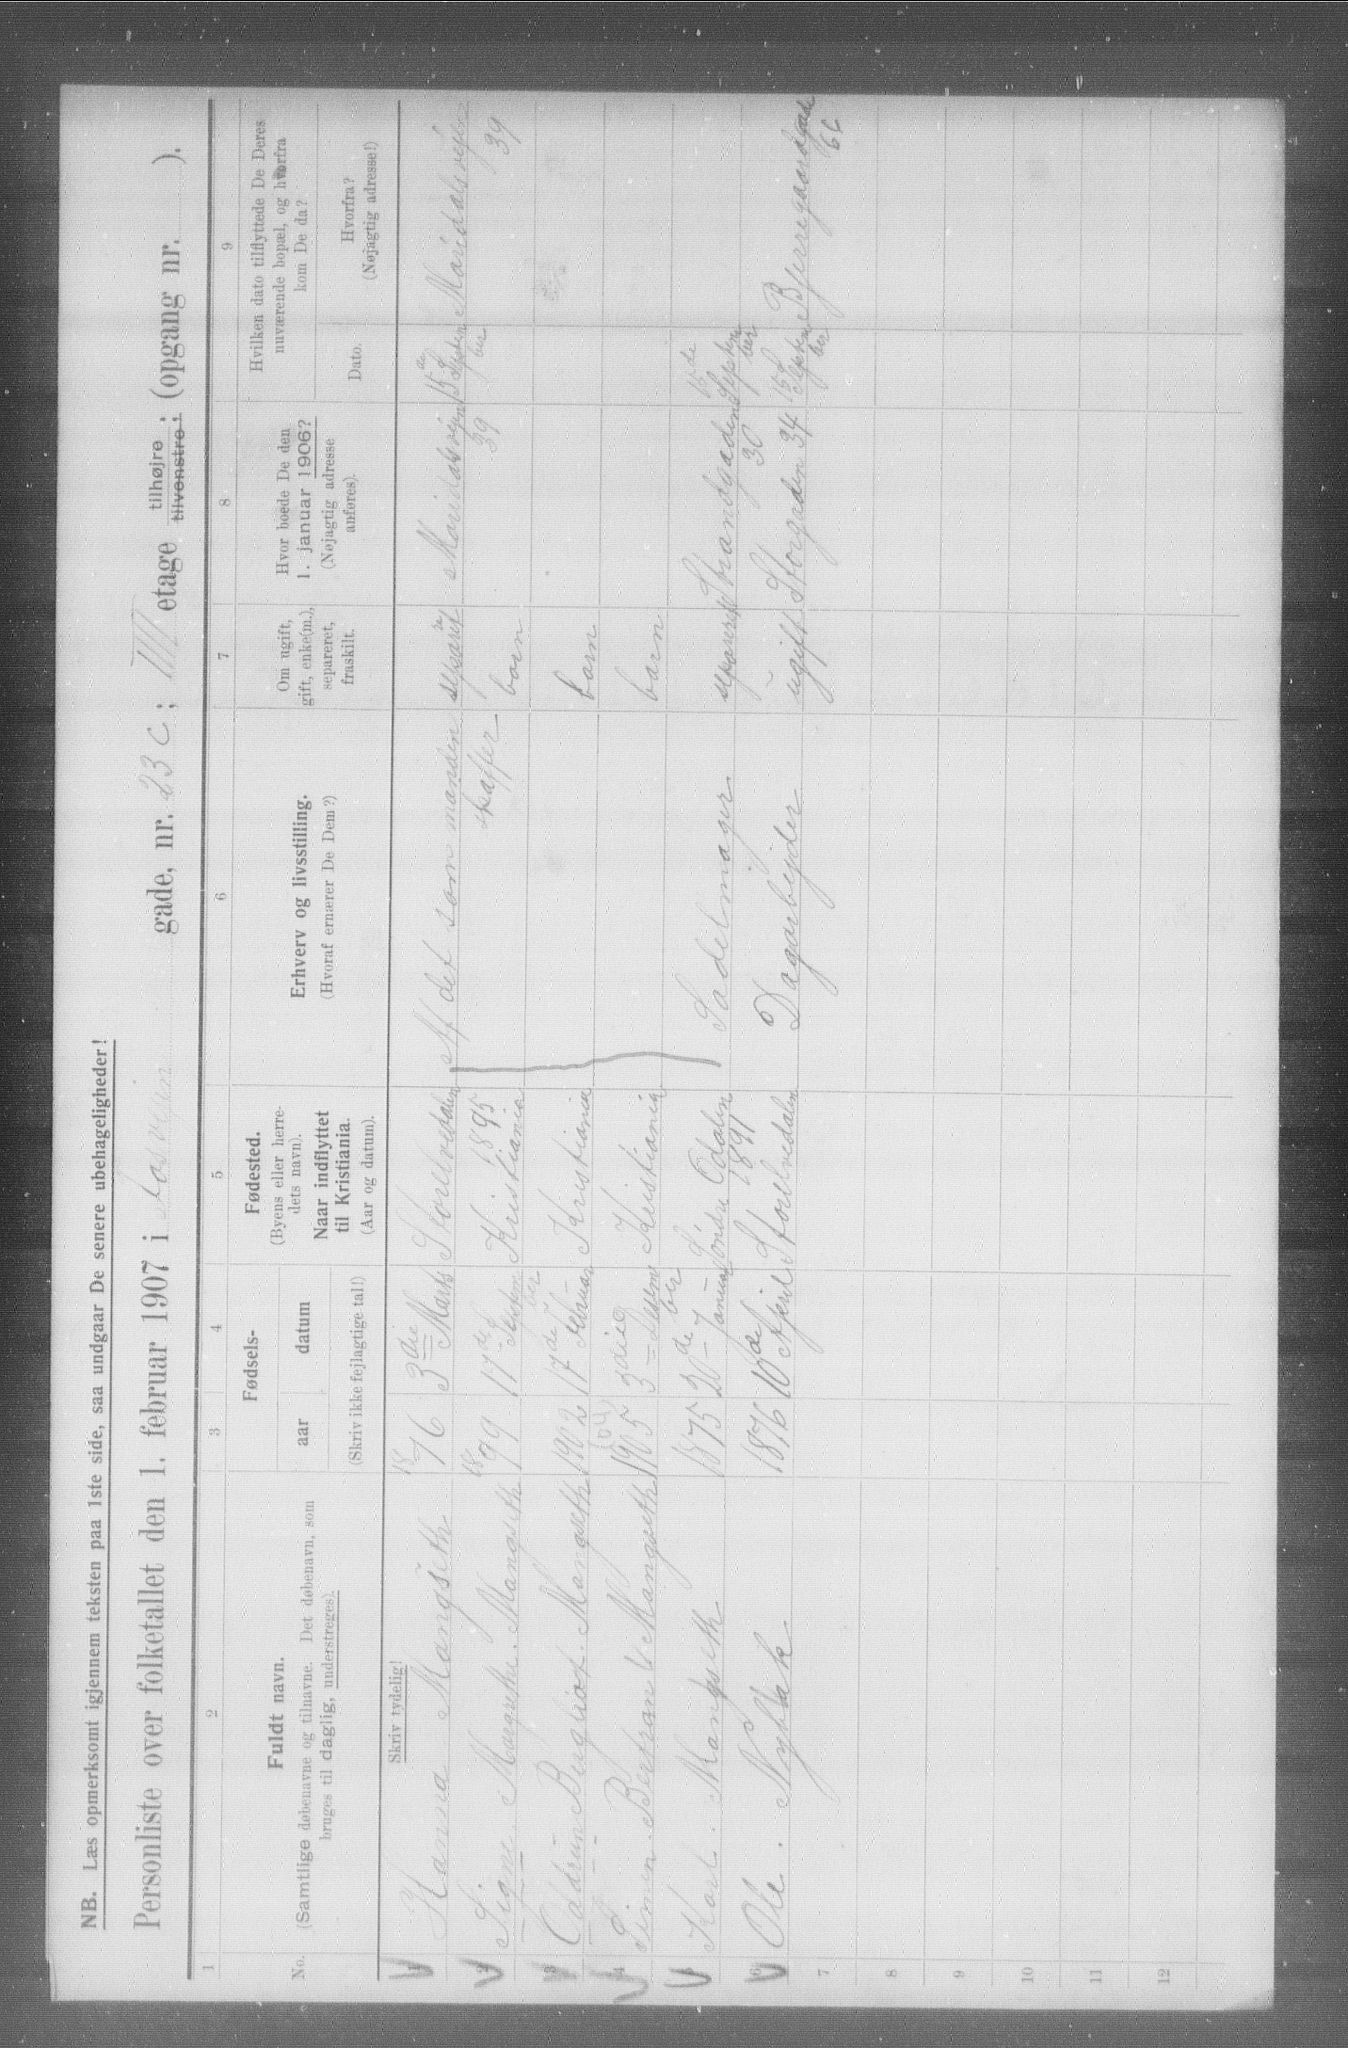 NB. Læs opmerksomt igjennem teksten paa 1ste side, saa undgaar De senere ubehageligheder!
Personliste over folketallet den 1. februar 1907 i gade, nr. 23 C; III etage tilhøjre; tilvenstre; (opgang nr. ).
1 2 3 4 5 6 7 8 9
No.
Fuldt navn.
(Samtlige døbenavne og tilnavne. Det døbenavn, som
bruges til daglig, understreges).
Fødsels-
aar datum
(Skriv ikke fejlagtige tal!)
Fødested.
(Byens eller herre-
dets navn).
Naar indflyttet
til Kristiania.
(Aar og datum).
Erhverv og livsstilling.
(Hvoraf ernærer De Dem?)
Om ugift,
gift, enke(m.),
separeret,
fraskilt.
Hvor boede De den
1. januar 1906?
(Nøjagtig adresse
anføres).
Hvilken dato tilflyttede De Deres
nuværende bopæl, og hvorfra
kom De da?
Dato.
Hvorfra?
(Nøjagtig adresse!)
Skriv tydelig!
1 Hanna Mangseth 1876 3die Marts Storelvedalen 1895 Af det som manden skaffer Maridalsvejen 39 15de September Maridalsvejen 39
2 Signe Margrethe Mangseth 1899 17de September Kristiania barn
3 Oddrun Mangseth 1902 17de Februar Kristiania barn
4 Bertrand Mangseth 1905 3die December Kristiania barn
5 Karl Mangseth 1875 20de Januar Søndre Odalen 1891 Sadelmager Strandgaden 30 15de September
6 Ole 1876 10de April Storelvedalen Dagarbejder ugift Storgaden 34 15de September Bjerregaardsgade 66
7
8
9
10
11
12